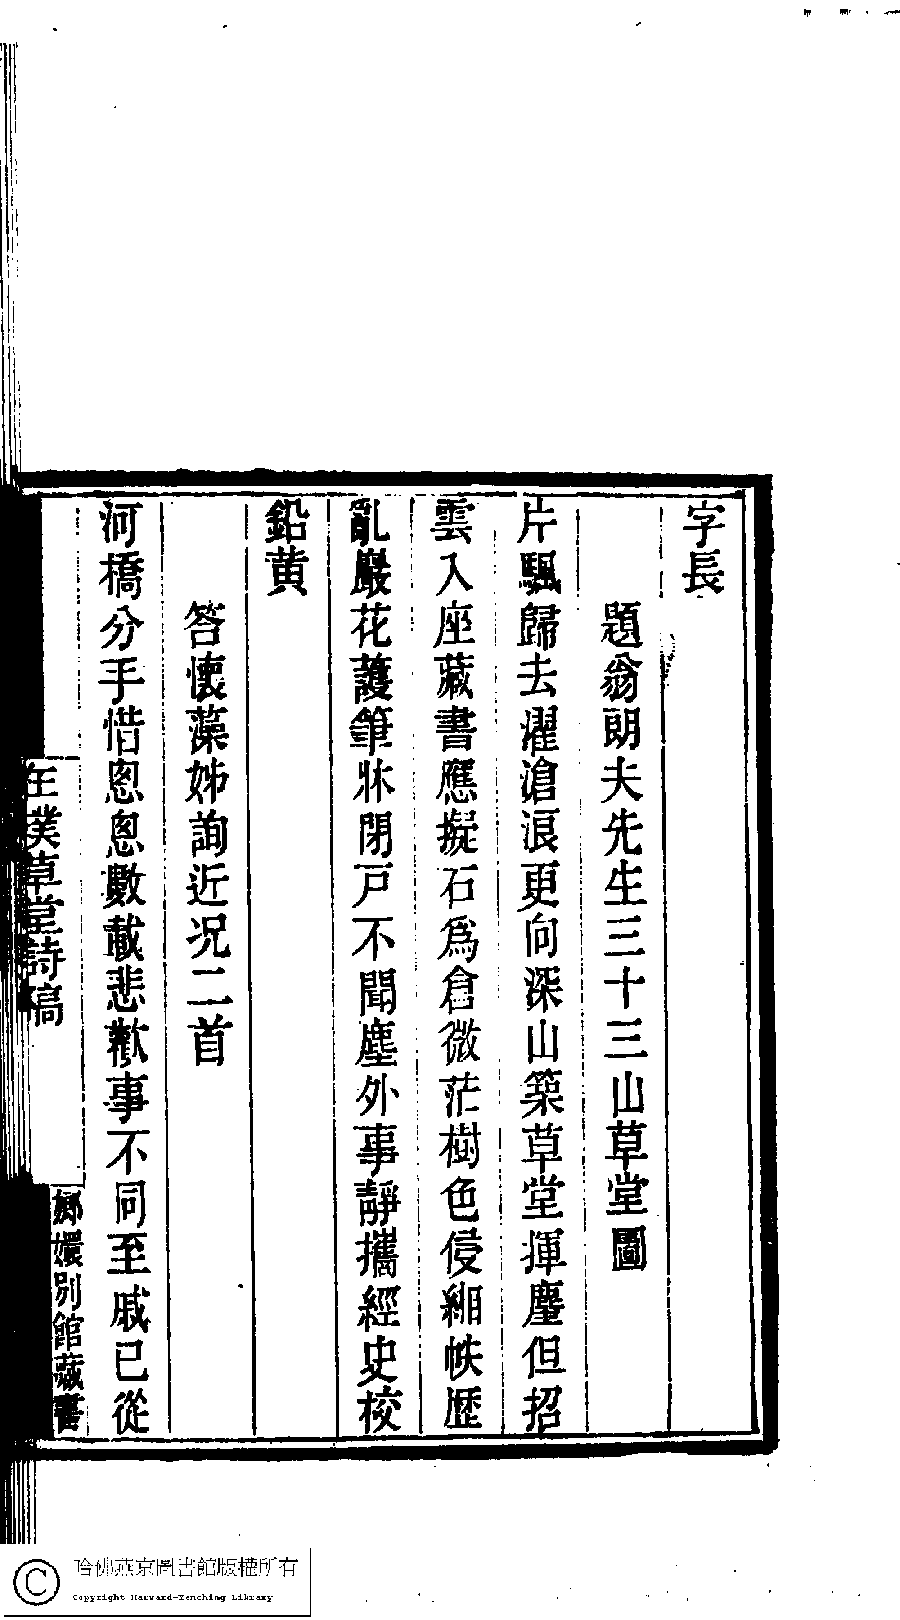 字長
題翁朗夫先生三十三山草堂圖
片颿歸去濯滄浪更向深山築草堂揮麈但招
雲入座藏書應擬石爲倉微茫樹色侵緗帙歷
亂巖花護筆牀閉戸不聞塵外事靜攜經史校
鉛黄
答懷藻姊詢近况二首
河橋分手惜悤悤數載悲歡事不同至戚已從
玉璞草堂詩稿
嫏嬛別館藏書
哈佛燕京圖書館版權所有
Copyright Harvard-Yenching Library